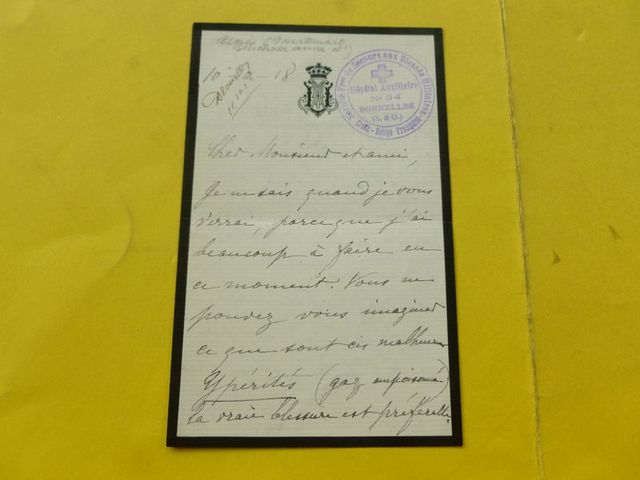 18
Société Frse de Secours aux Blessés Militaires
Hôpital Auxiliaire
No 34
BONNELLES
(S. & O.)
Croix-Rouge Française
Cher Monsieur et ami,
Je ne sais quand je vous
verrai, parce que j'ai
beaucoup à faire en
ce moment. Vous ne
pouvez vous imaginer
ce que sont ces malheureux
Ypérités (gaz empoisonné)
La vraie blessure est préférable.